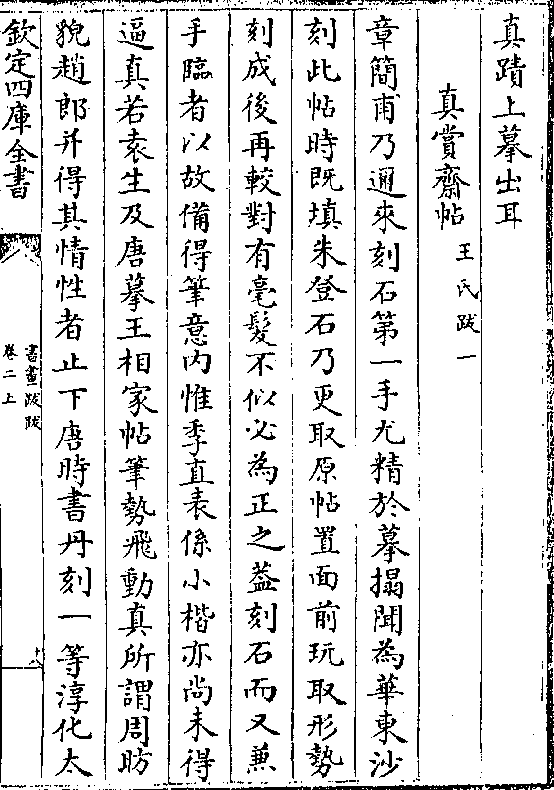 真蹟上摹出耳
真賞齋帖 王氏跋一
章簡甫乃邇來刻石第一手尤精於摹搨聞為華東沙
刻此帖時既填朱登石乃更取原帖置面前玩取形勢
刻成後再較對有毫髮不似必為正之葢刻石而又兼
手臨者以故備得筆意内惟季直表係小楷亦尚未得
逼真若袁生及唐摹王相家帖筆勢飛動真所謂周昉
貌趙郎并得其情性者止下唐時書丹刻一等淳化太
欽定四庫全書
書畫跋跋
卷二上
十八